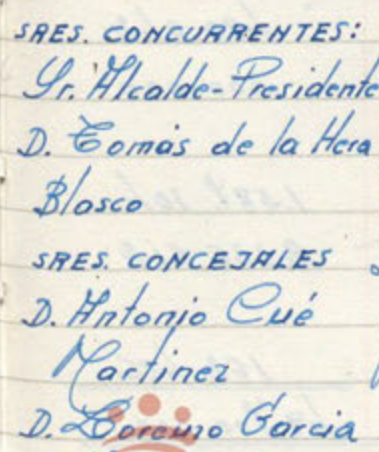 SRES. CONCURRENTES:
Sr. Alcalde-Presidente
D. Tomás de la Hera
Blosco
SRES. CONCEJALES
D. Antonio Cué
Martinez
D. Lorenzo Garcia